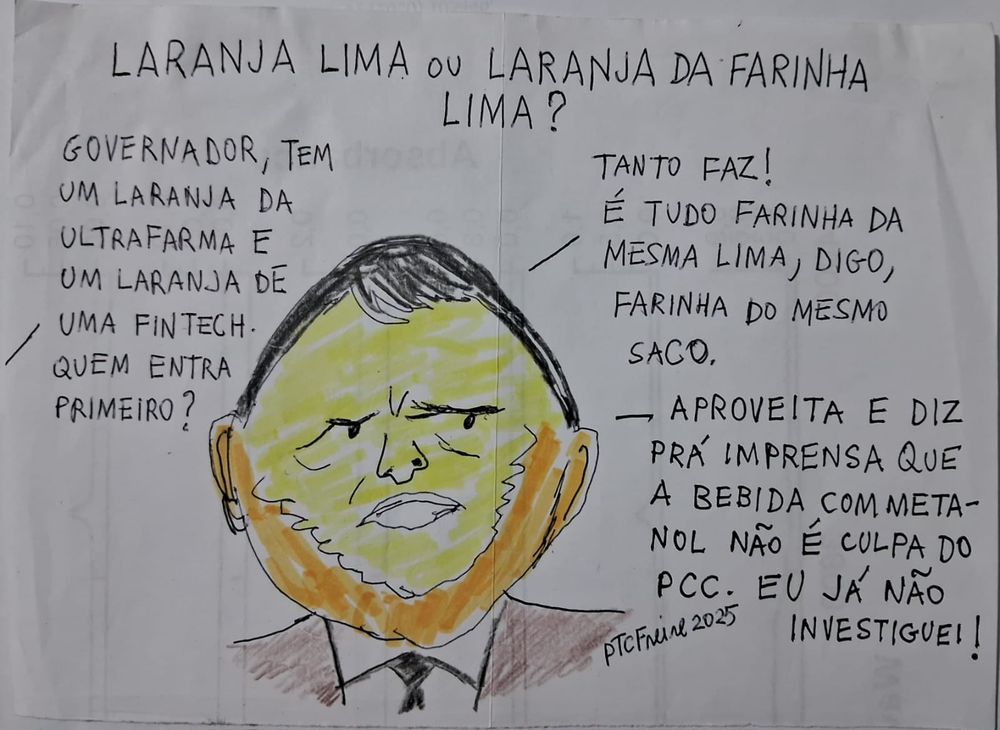 LARANJA LIMA OU LARANJA DA FARINHA
LIMA?
GOVERNADOR, TEM
UM LARANJA DA
ULTRAFARMA E
UM LARANJA DE
UMA FINTECH.
QUEM ENTRA
PRIMEIRO?
TANTO FAZ!
É TUDO FARINHA DA
MESMA LIMA, DIGO,
FARINHA DO MESMO
SACO.
— APROVEITA E DIZ
PRÁ IMPRENSA QUE
A BEBIDA COM META-
NOL NÃO É CULPA DO
PCC. EU JÁ NÃO
INVESTIGUEI!
PTCFreire 2025